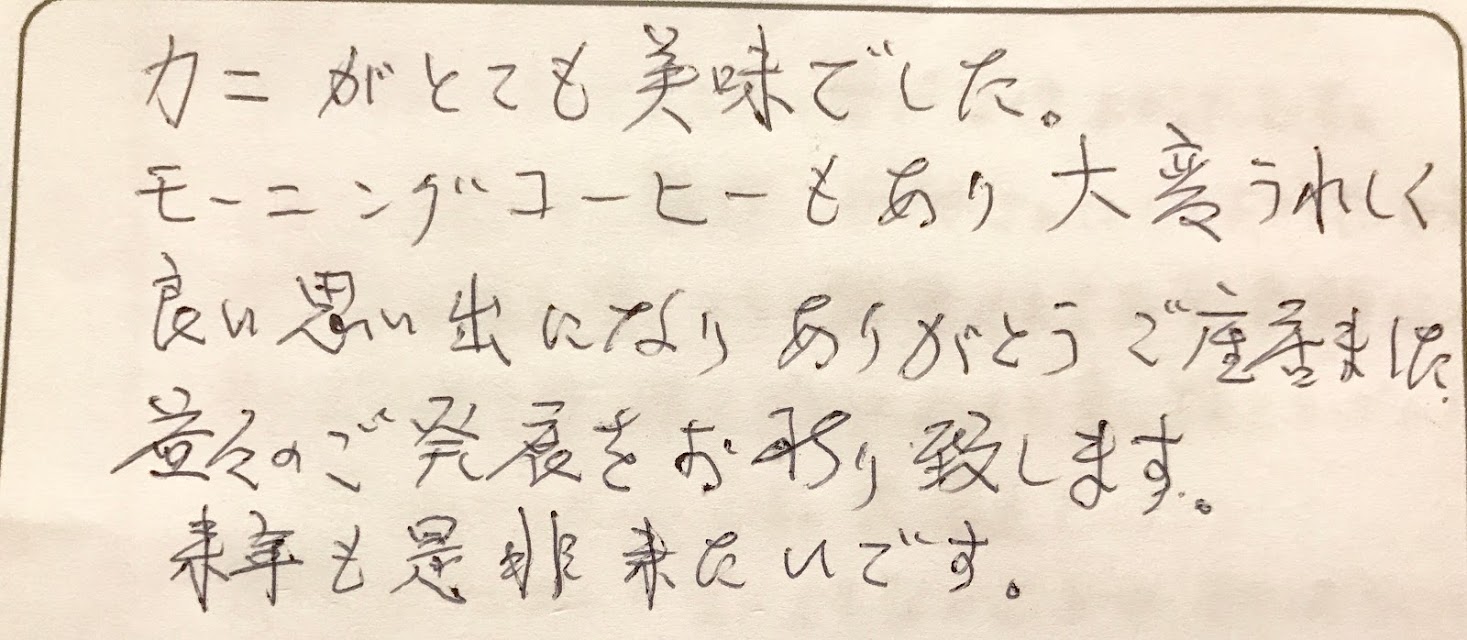 カニがとても美味でした。
モーニングコーヒーもあり大変うれしく
良い思い出になりありがとうご座居ました.
益々のご発展をお祈り致します。
来年も是非来たいです。